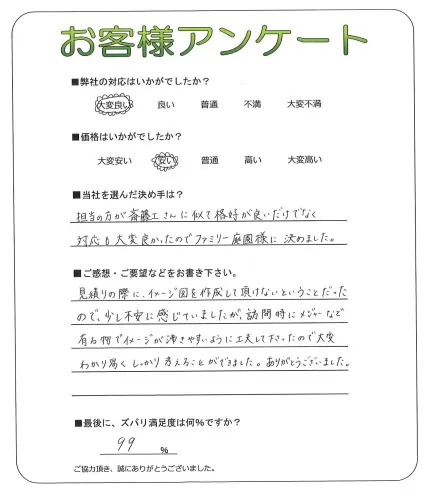 お客様アンケート
■弊社の対応はいかがでしたか？
大変良い 良い 普通 不満 大変不満
■価格はいかがでしたか？
大変安い 安い 普通 高い 大変高い
■当社を選んだ決め手は？
担当の方が斉藤工さんに似て格好が良いだけでなく
対応も大変良かったのでファミリー庭園様に決めました。
■ご感想・ご要望などをお書き下さい。
見積りの際に、イメージ図を作成して頂けないということだった
ので、少し不安に感じていましたが、訪問時にメジャーなど
有る物でイメージが沸きやすいように工夫して下さったので大変
わかり易くしっかり考えることができました。ありがとうございました。
■最後に、ズバリ満足度は何％ですか？
99 ％
ご協力頂き、誠にありがとうございました。